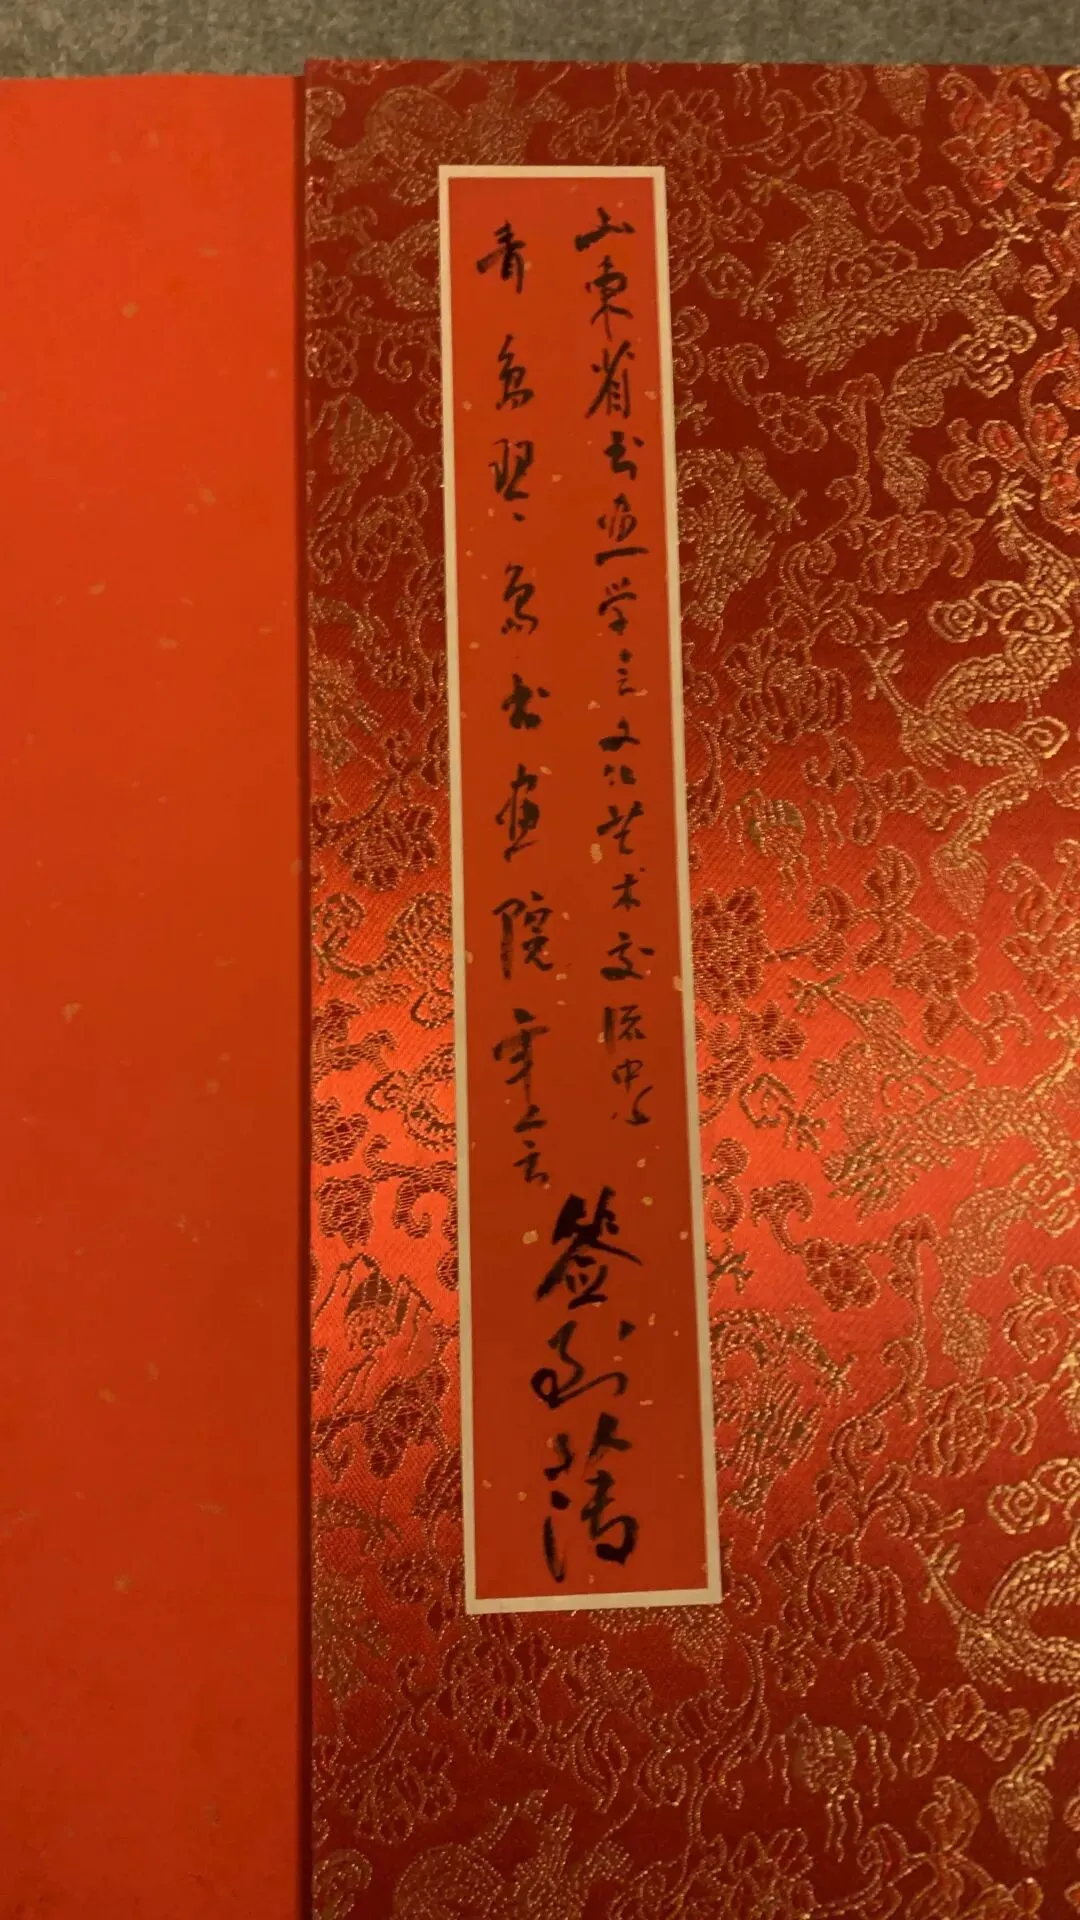 山东省书画学会文化艺术交流中心
青岛琴岛书画院年会
签到簿